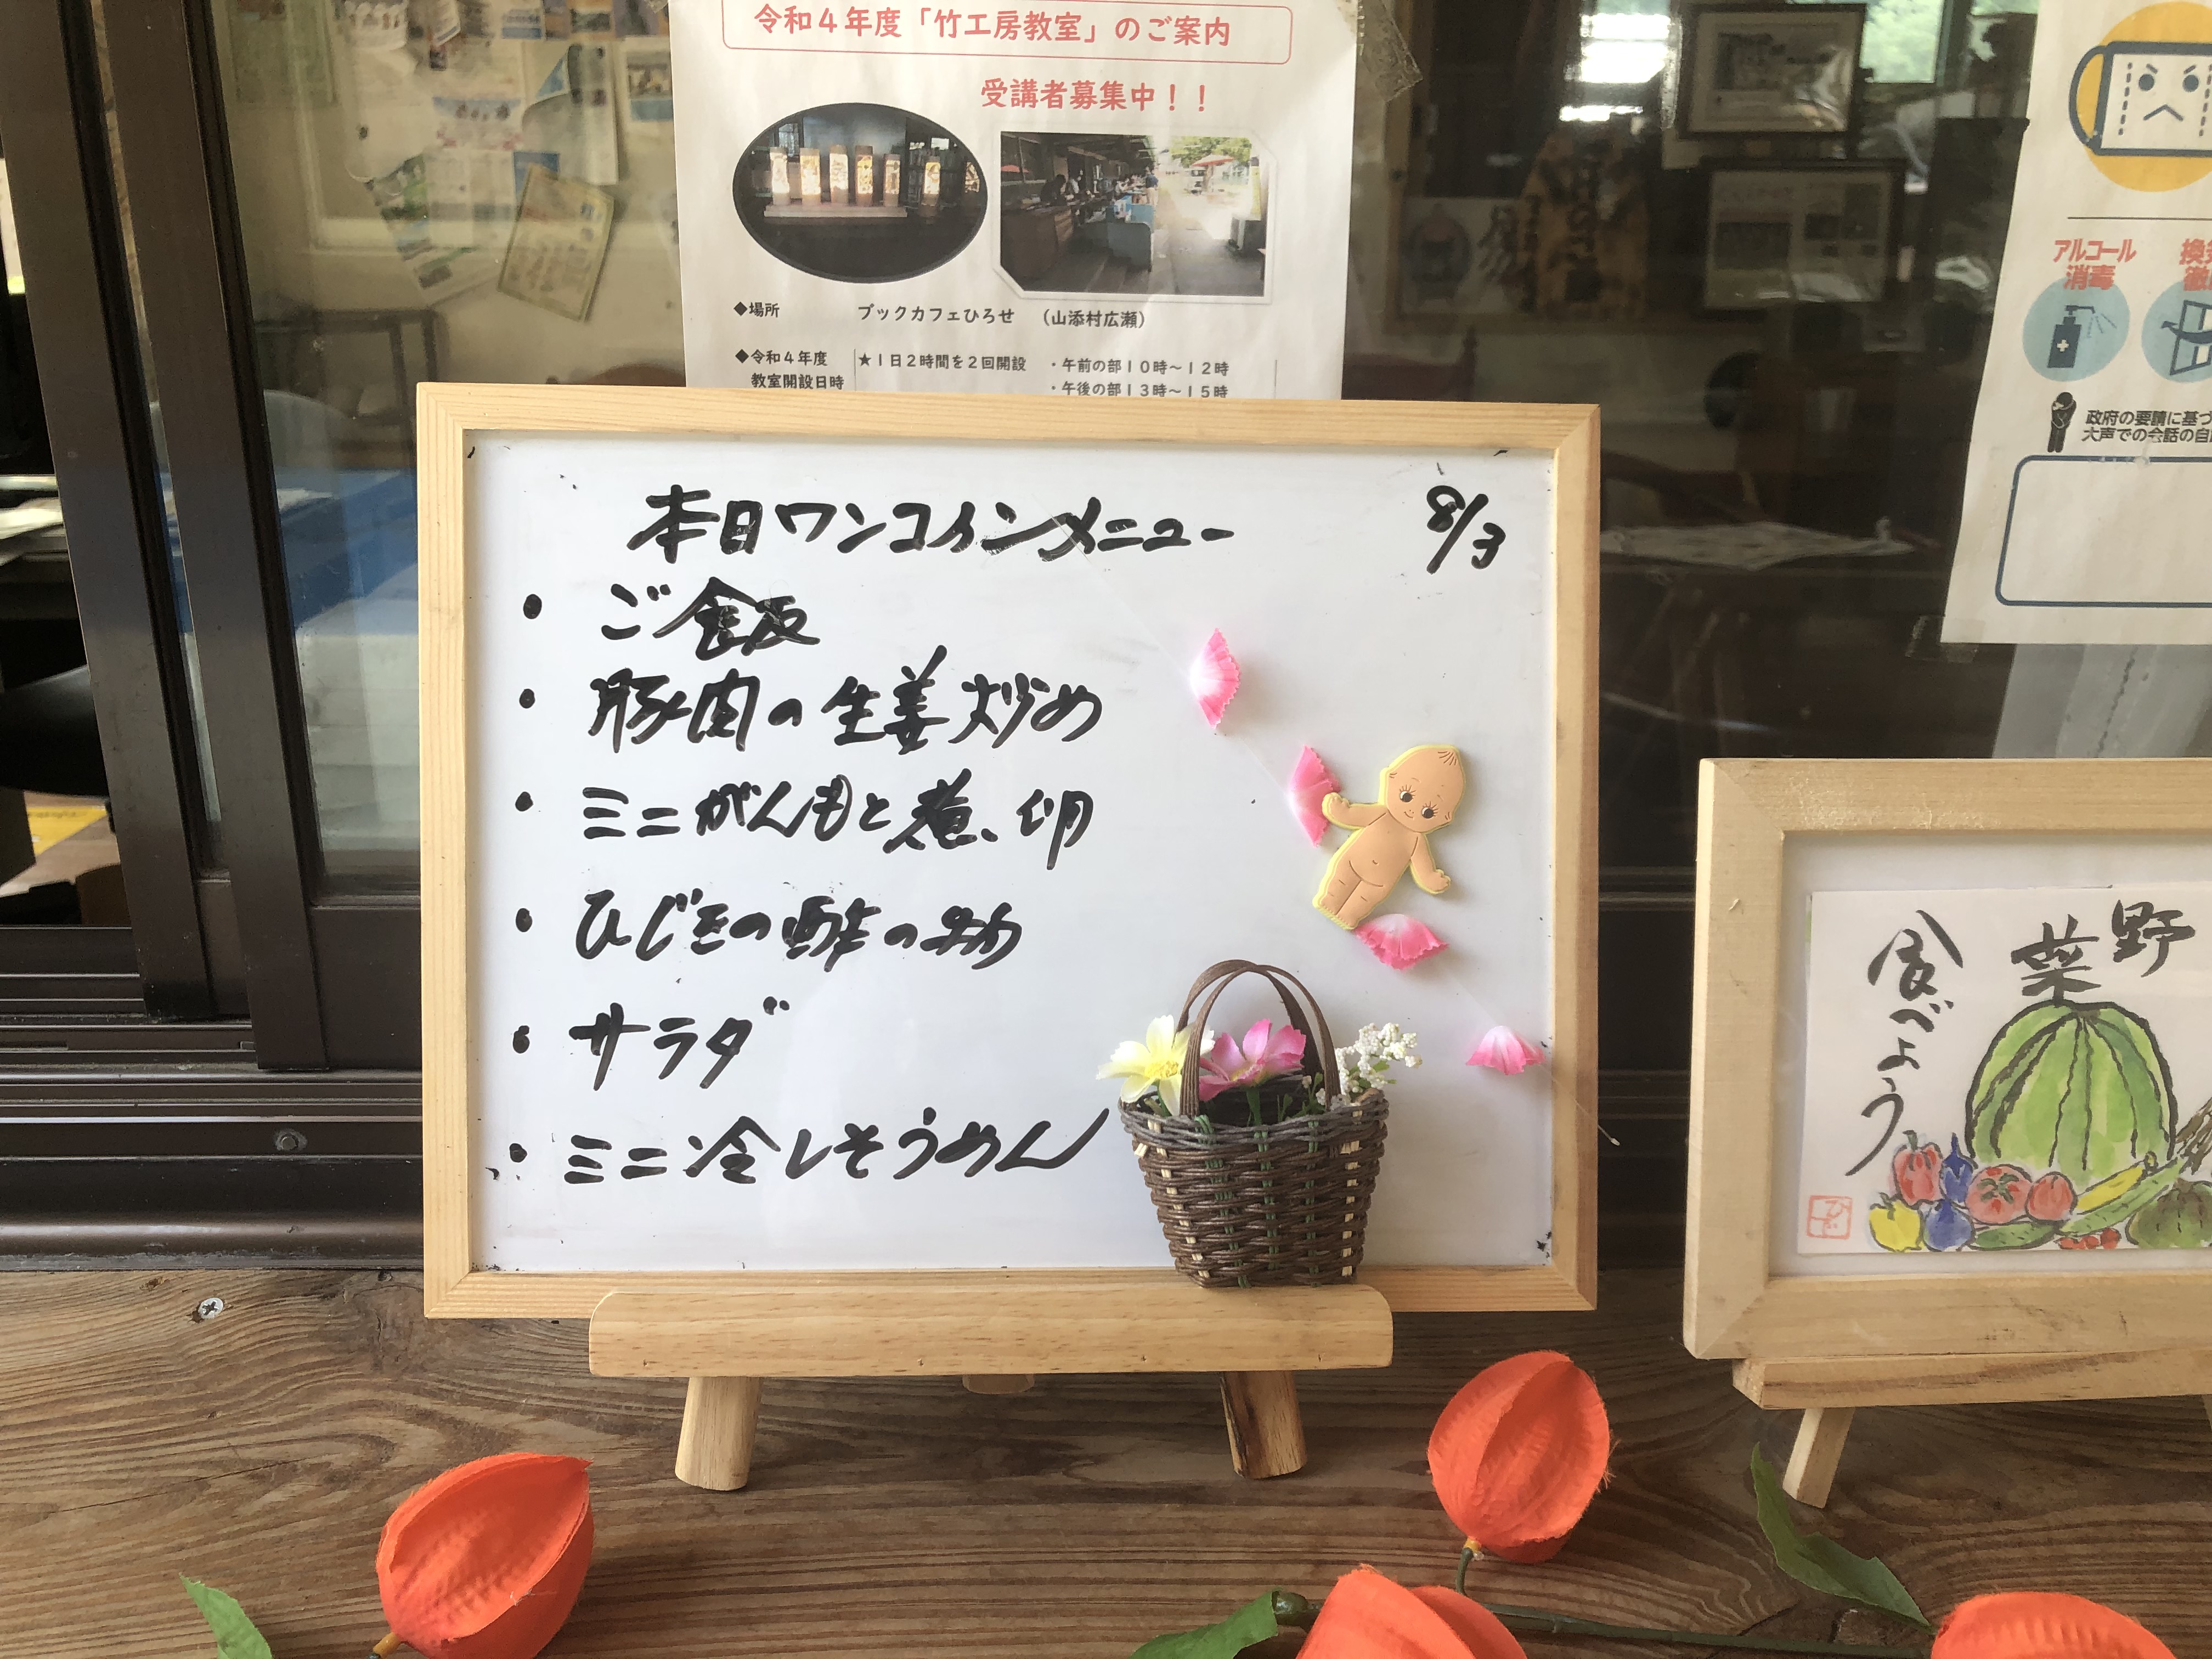 令和４年度「竹工房教室」のご案内
受講者募集中！！
◆場所 ブックカフェひろせ （山添村広瀬）
◆令和４年度 ★１日２時間を２回開設 ・午前の部１０時～１２時
教室開設日時 ・午後の部１３時～１５時
本日ワンコインメニュー 8/3
・ご飯
・豚肉の生姜炒め
・ミニがんもと煮、卵
・ひじきの酢の物
・サラダ
・ミニ冷しそうめん
アルコール
消毒
換気
徹
政府の要請に基づ
大声での会話の自
野
菜
食べよう